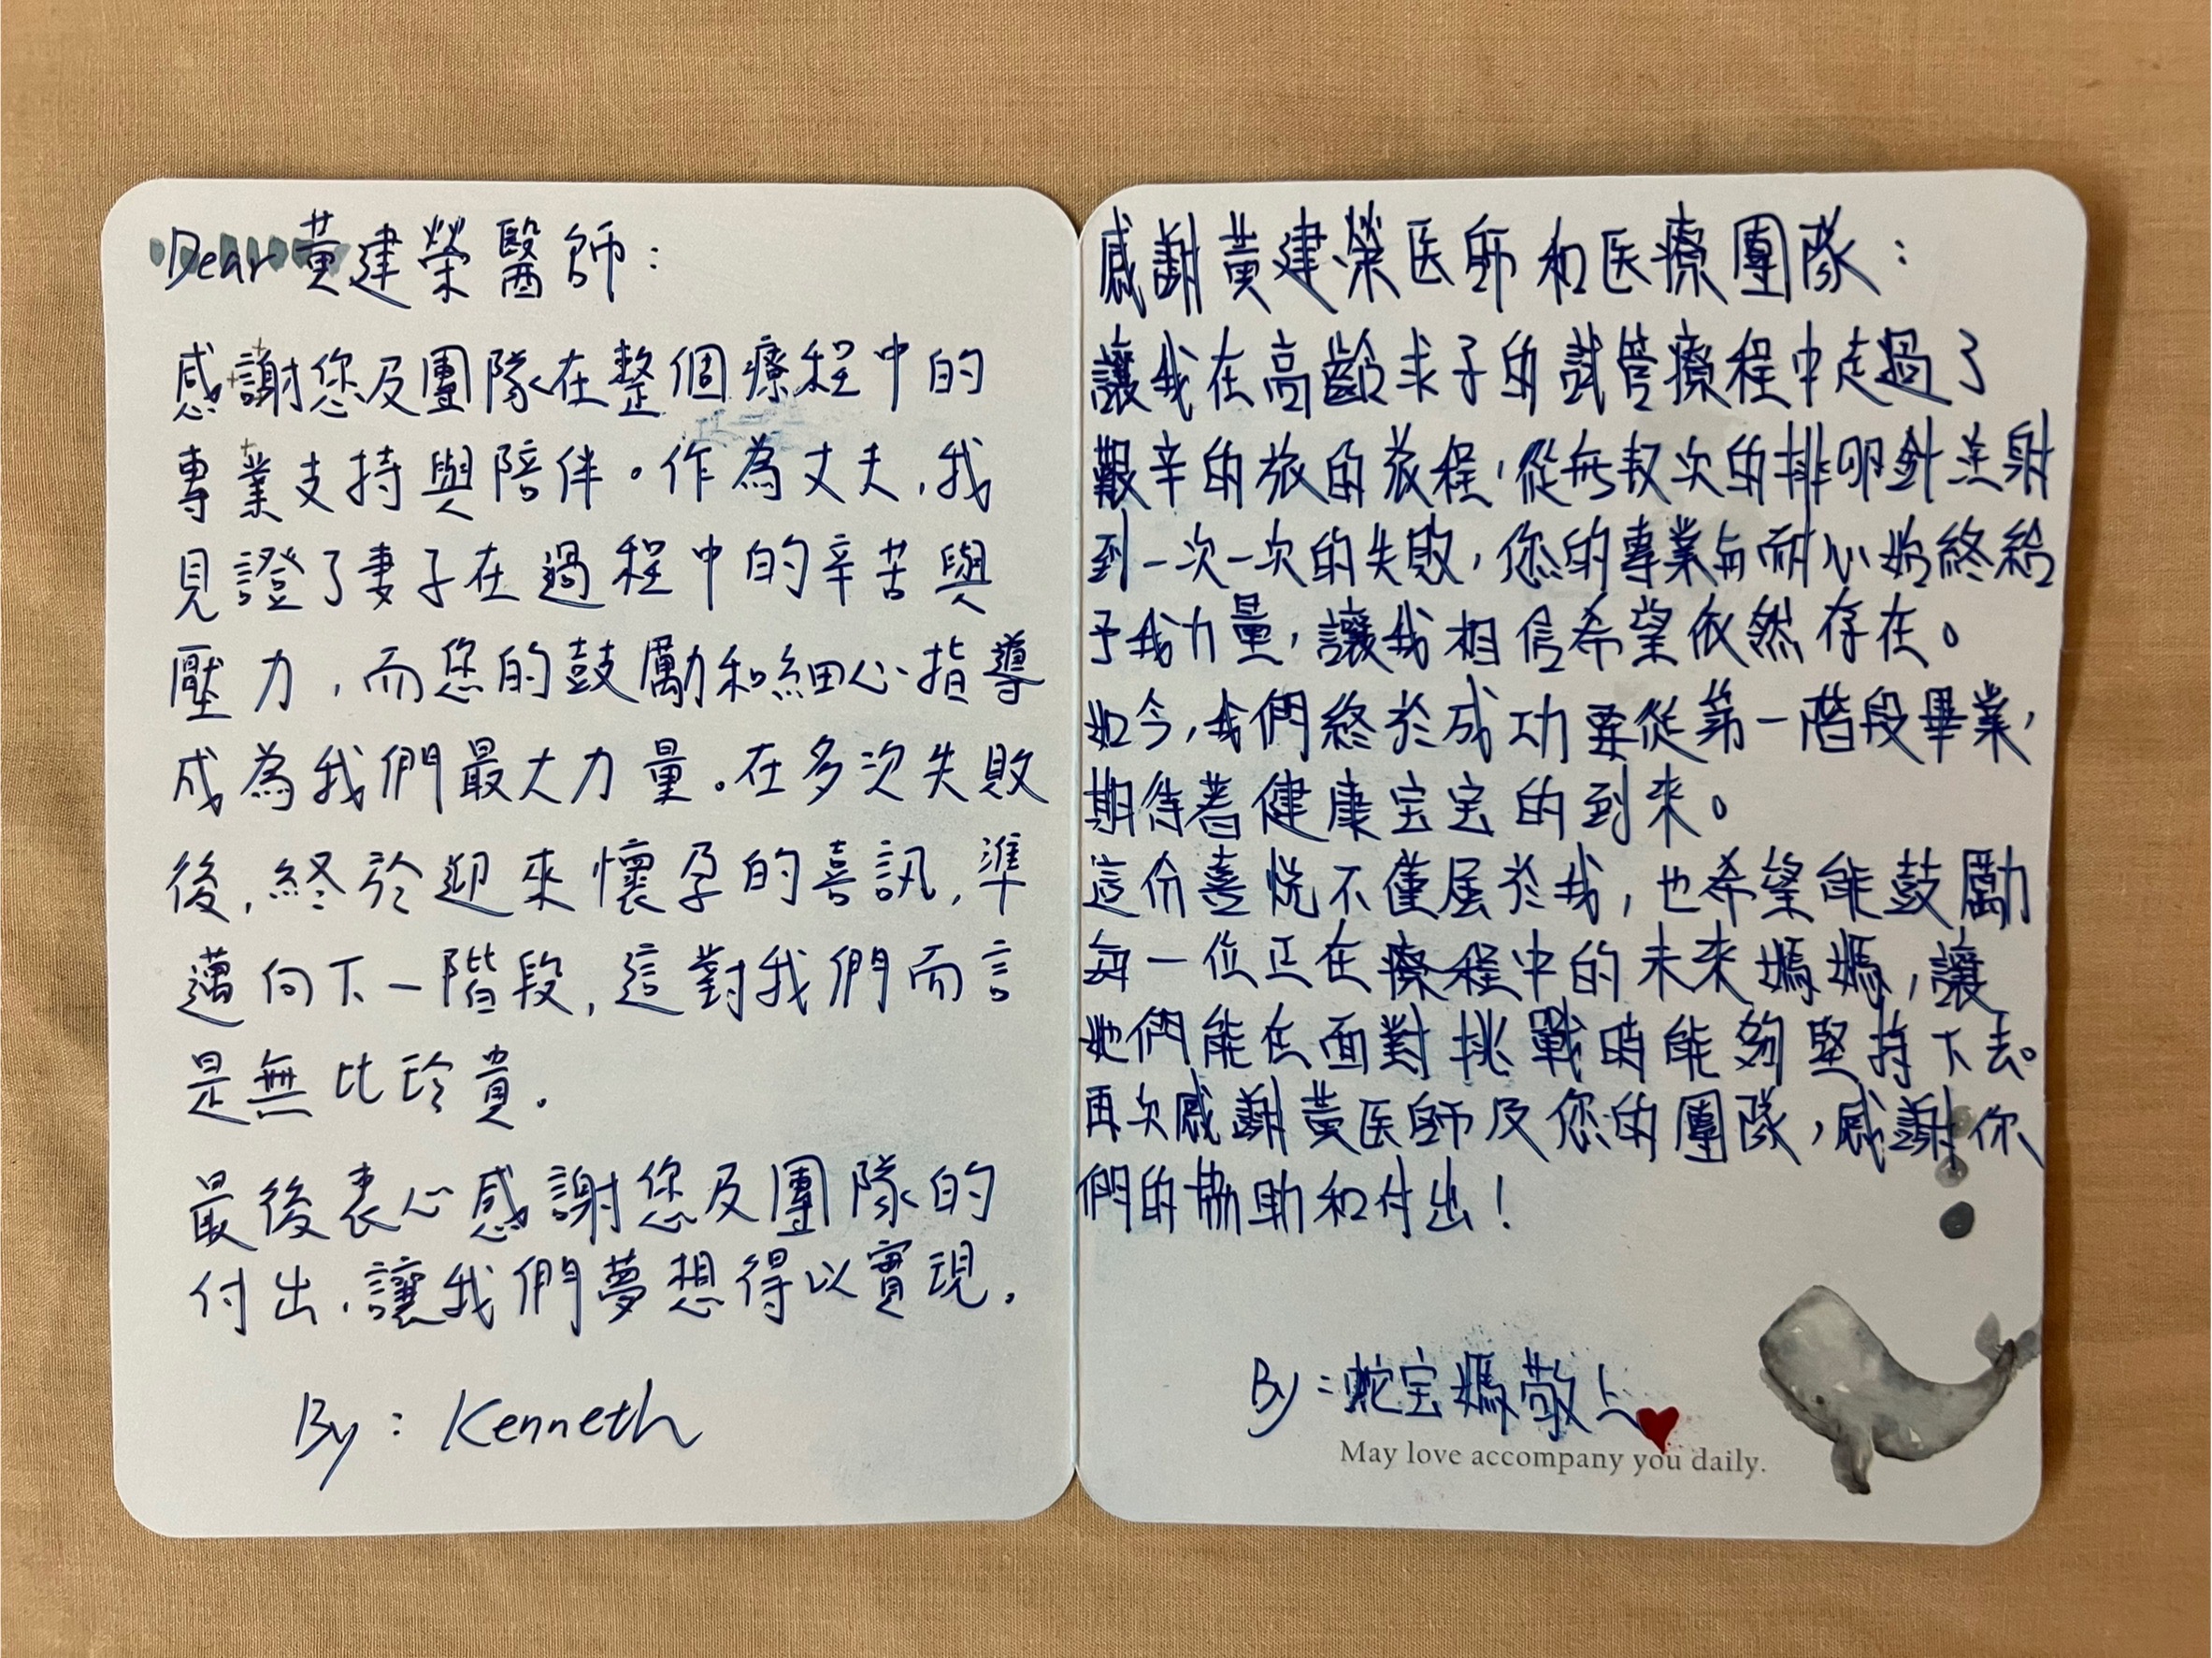 Dear 黃建榮醫師：
感謝您及團隊在整個療程中的
專業支持與陪伴。作為丈夫，我
見證了妻子在過程中的辛苦與
壓力，而您的鼓勵和細心指導
成為我們最大力量。在多次失敗
後，終於迎來懷孕的喜訊，準
邁向下一階段，這對我們而言
是無比珍貴.
最後衷心感謝您及團隊的
付出，讓我們夢想得以實現.
By : Kenneth
感謝黃建榮医師和医療團隊：
讓我在高齡求子的試管療程中走過了
艱辛的旅的旅程，從無数次的排卵針注射
到一次一次的失敗，您的專業与耐心始終給
予我力量，讓我相信希望依然存在。
如今，我們終於成功要從第一階段畢業，
期待著健康宝宝的到來。
這份喜悦不僅屬於我，也希望能鼓勵
每一位正在療程中的未來媽媽，讓
她們能在面對挑戰時能夠堅持下去。
再次感謝黃医師及您的團隊，感謝你
們的協助和付出！
By : 蛇宝媽敬上
May love accompany you daily.